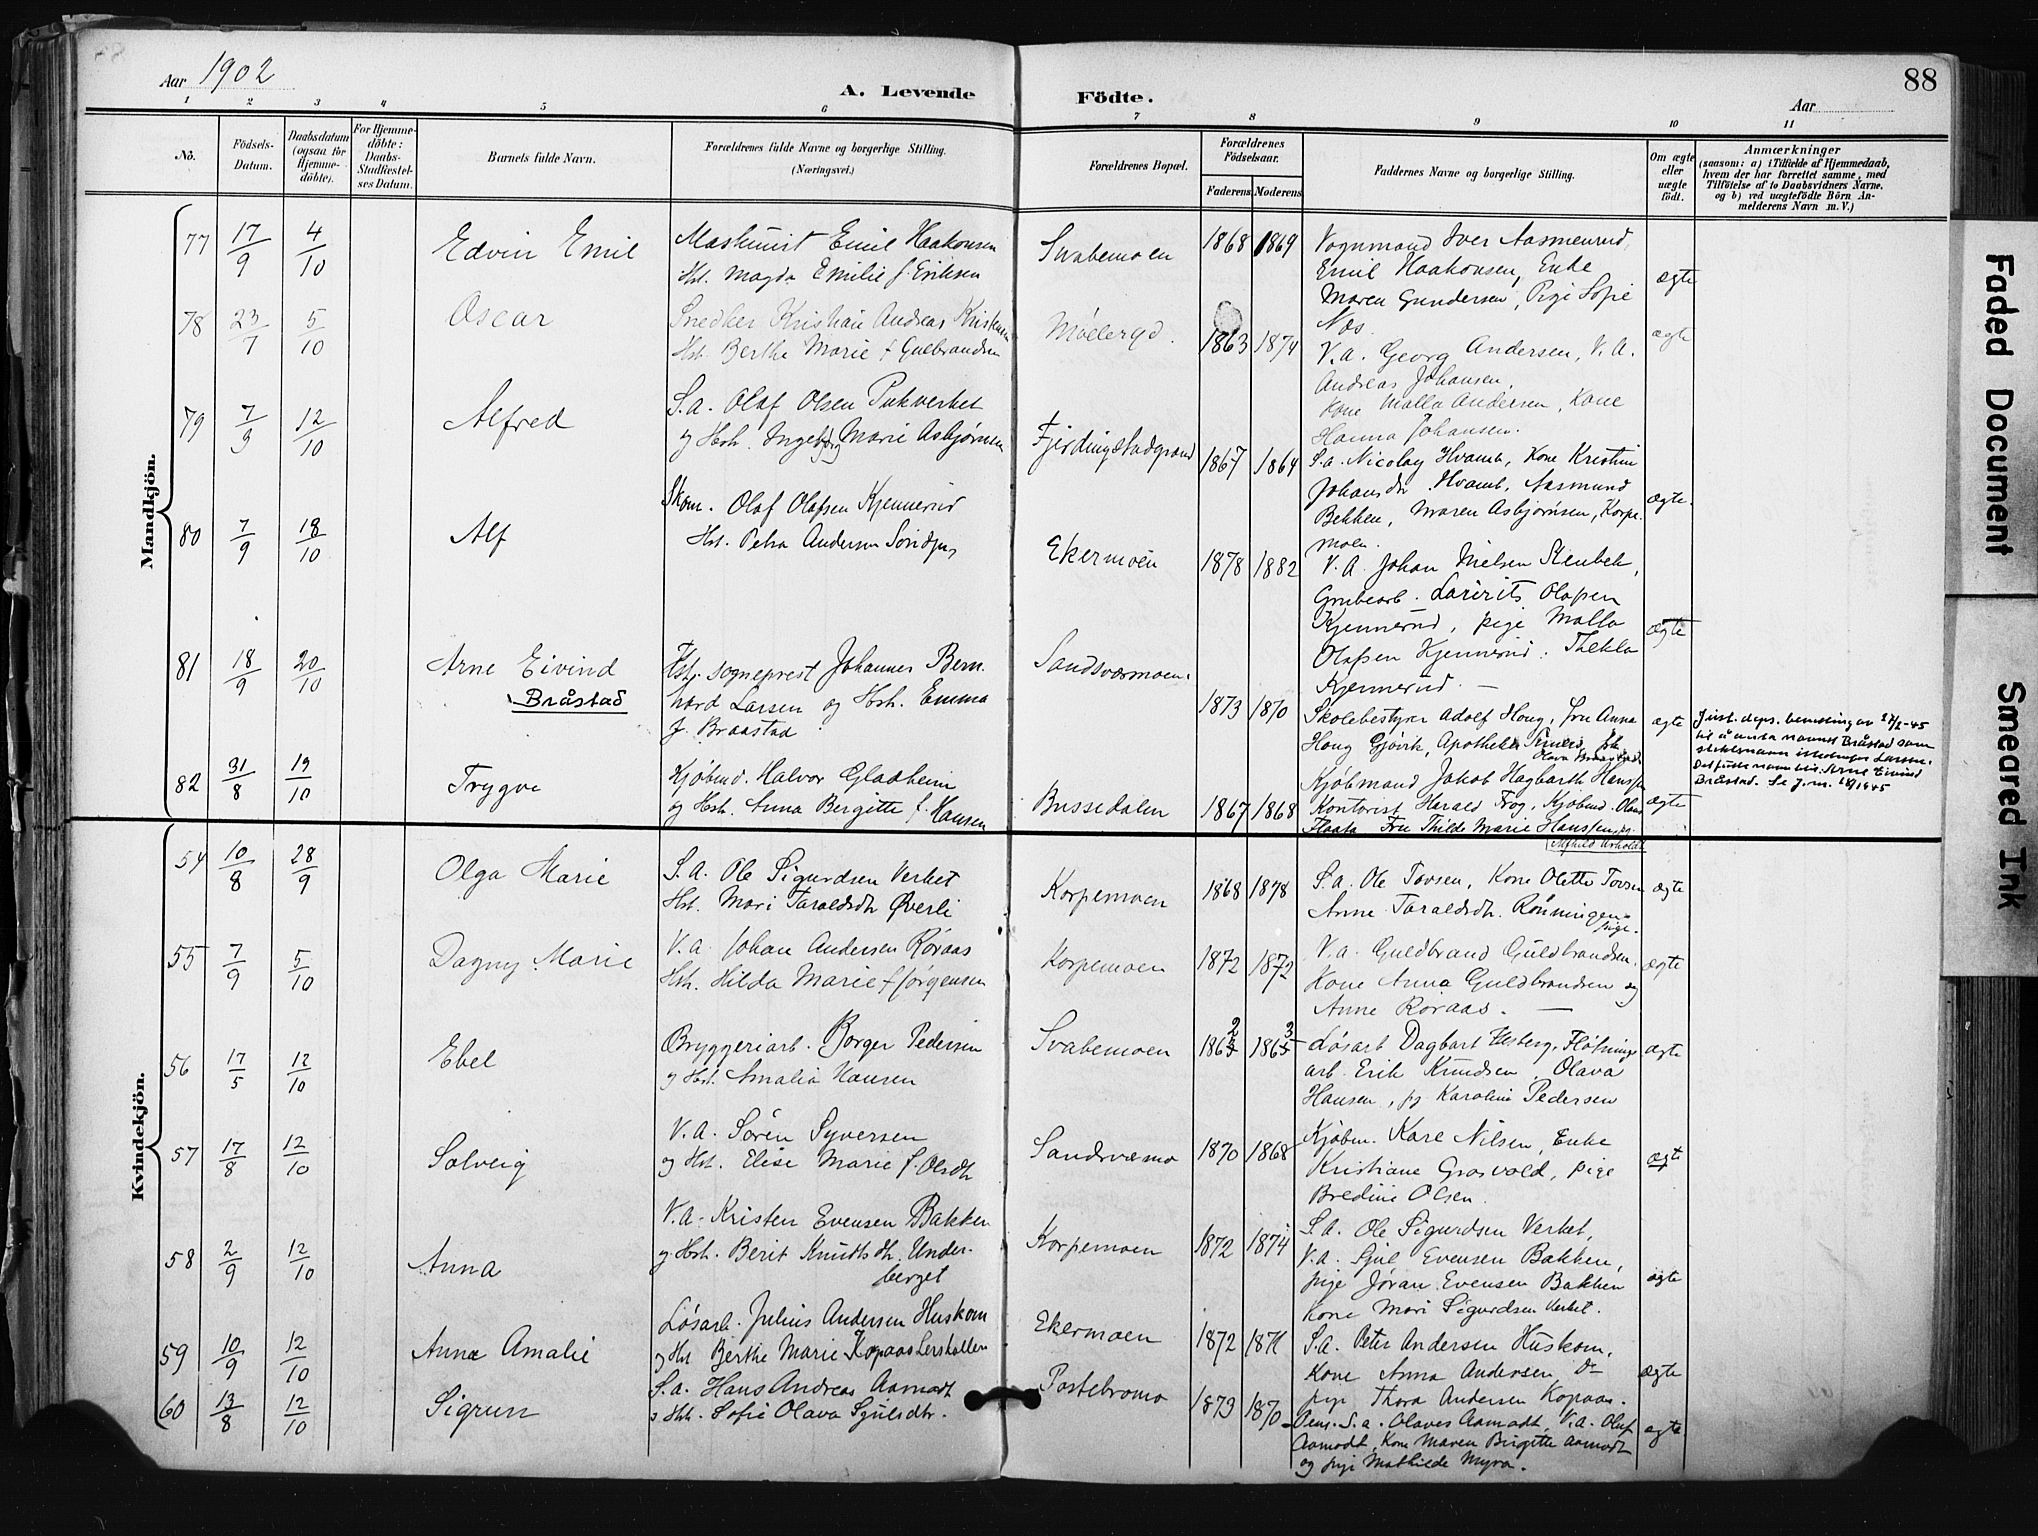 88
Aar 1902
A. Levende Födte.
Aar
1 2 3 4 5 6 7 8 9 10 11
No.
Födsels-Datum.
Daabsdatum (ogsaa for Hjemme-döbte).
For Hjemme-döbte: Daabs-Stadfæstel-ses Datum.
Barnets fulde Navn.
Forældrenes fulde Navne og borgerlige Stilling.
(Næringsvei.)
Forældrenes Bopæl.
Forældrenes Födselsaar.
Faderens Moderens
Faddernes Navne og borgerlige Stilling.
Om ægte eller uægte födt.
Anmærkninger
(saasom: a) i Tilfælde af Hjemmedaab,
hvem der har forrettet samme, med
Tilföielse af to Daabsvidners Navne.
og b) ved uægtefödte Börn An-
melderens Navn m. V.)
Mandkjön.
77 17/9 4/10 Edvin Emil
Maskinist Emil Haakonsen
Hst. Magda Emilie f. Eriksen
Svabemoen 1868 1869
Vognmand Iver Aasmenrud,
Emil Haakonsen, Enke
Maren Gundersen, Pige Sofie
Næs.
ægte
78 23/7 5/10 Oscar
Snedker Kristian Andreas Kristensen
Hst. Berthe Marie f. Gulbrandsen
Møllergd. 1863 1874
V.a. Georg Andersen, V.A.
Andreas Johansen,
Kone Malla Andersen, Kone
Hanna Johansen.
ægte
79 7/9 12/10 Alfred
S.a. Olaf Olsen Pukverket
og Hst. Ingebjørg Marie Asbjørnsen
Fjerdingstadgrand 1867 1864
S.a. Nicolay Hvamb, Kone Kristine
Johansdr. Hvamb, Aasmund
Bekken, Maren Asbjørnsen, Korpe-
moen.
ægte.
80 7/9 18/10 Alf
Skom. Olaf Olafsen Kjennerud
Hst. Petra Andersen
Ekermoen 1878 1882
V.A. Johan Nielsen Stenbek,
Grubearb. Lauritz Olafsen
Kjennerud, pige Malla
Olafsen Kjennerud. Thekla
Kjennerud. —
ægte
81 18/9 20/10 Arne Eivind
Bråstad
Hst. sogneprest Johannes Bern-
hard Larsen og Hst. Emma
f. Braastad
Sandsværmoen. 1873 1870
Skolebestyrer Adolf Houg, fru Anna
Houg Gjøvik, Apotheker
ægte
Just. deps. bemskning av 27/2-45
til å anta navnet Bråstad som
slektsnavn istedenfor Larsen.
Det fulle navn blir: Arne Eivind
Bråstad.
82 31/8 19/10 Trygve
Kjøbmd. Halvor Gladheim
og Hst. Anna Bergitte f. Hansen
Bussedalen 1867 1868
Kjøbmand Jakob Hagbarth Hanssen
Kontorist Harald Frog, Kjøbmd. Olaus
Flaata Fru Thilde Marie Hanssen, pg.
Alfhild Arholdt
ægte
Kvindekjön.
54 10/8 28/9 Olga Marie
S.A. Ole Sigurdsen Verket
Hst. Mari Taraldsdtr Øverli
Korpemoen 1868 1878
S.a. Ole Tovsen, Kone Olette Tovsen
Anne Taraldsdtr. Rønningen
pige.
ægte
55 7/9 5/10 Dagny Marie
V.a. Johan Andersen Røraas
Hst. Hilda Marie f. Jørgensen
Korpemoen 1872 1872
V.a. Guldbrand Guldbrandsen.
Kone Anna Guldbrandsen og
Anne Roraas. —
ægte
56 17/5 12/10 Ebel
Bryggeriarb. Borger Pedersen
og Hst. Amalia Hansen
Svabemoen 1862 1863
Løsarb Dagbart Helsberg, Fløtnings
arb. Erik Knudsen, Olava
Hansen, pg Karoline Pedersen
ægte
57 17/8 12/10 Solveig
V.A. Søren Syversen
og Hst. Elise Marie f. Olsdtr
Sandsværmo 1870 1868
Kjøbm. Karl Nilsen, Enke
Kristiane Grosvold, pige
Bredine Olsen.
ægt
58 2/9 12/10 Anna
V.a. Kristen Evensen Bakken
og Hst. Berit Knudtsdtr. Under-
berget
Korpemoen 1872 1874
S.a. Ole Sigurdsen Verket,
V.a. Gjul Evensen Bakken,
pige Jøran Evensen Bakken
Kone Mari Sigurdsen Verket.
ægte
59 10/9 12/10 Anna Amalie
Løsarb. Julius Andersen Huskom
og Hst Berthe Marie Kopaas Lerskallen
Ekermoen 1872 1871
S.a. Peter Andersen Huskom,
Kone Anna Andersen Do
pige Thora Andersen Kopaas.
ægte
60 13/8 12/10 Sigrun
S.a. Hans Andreas Aamodt
o Hst. Sofie Olava Gjulsdtr.
Postebromo 1873 1870
Pens. S.a. Olaves Aamodt, V.a. Oluf
Aamodt, Kone Maren Birgitte Aamodt
og pige Mathilde Myra.
ægte
Faded Document
Smeared Ink